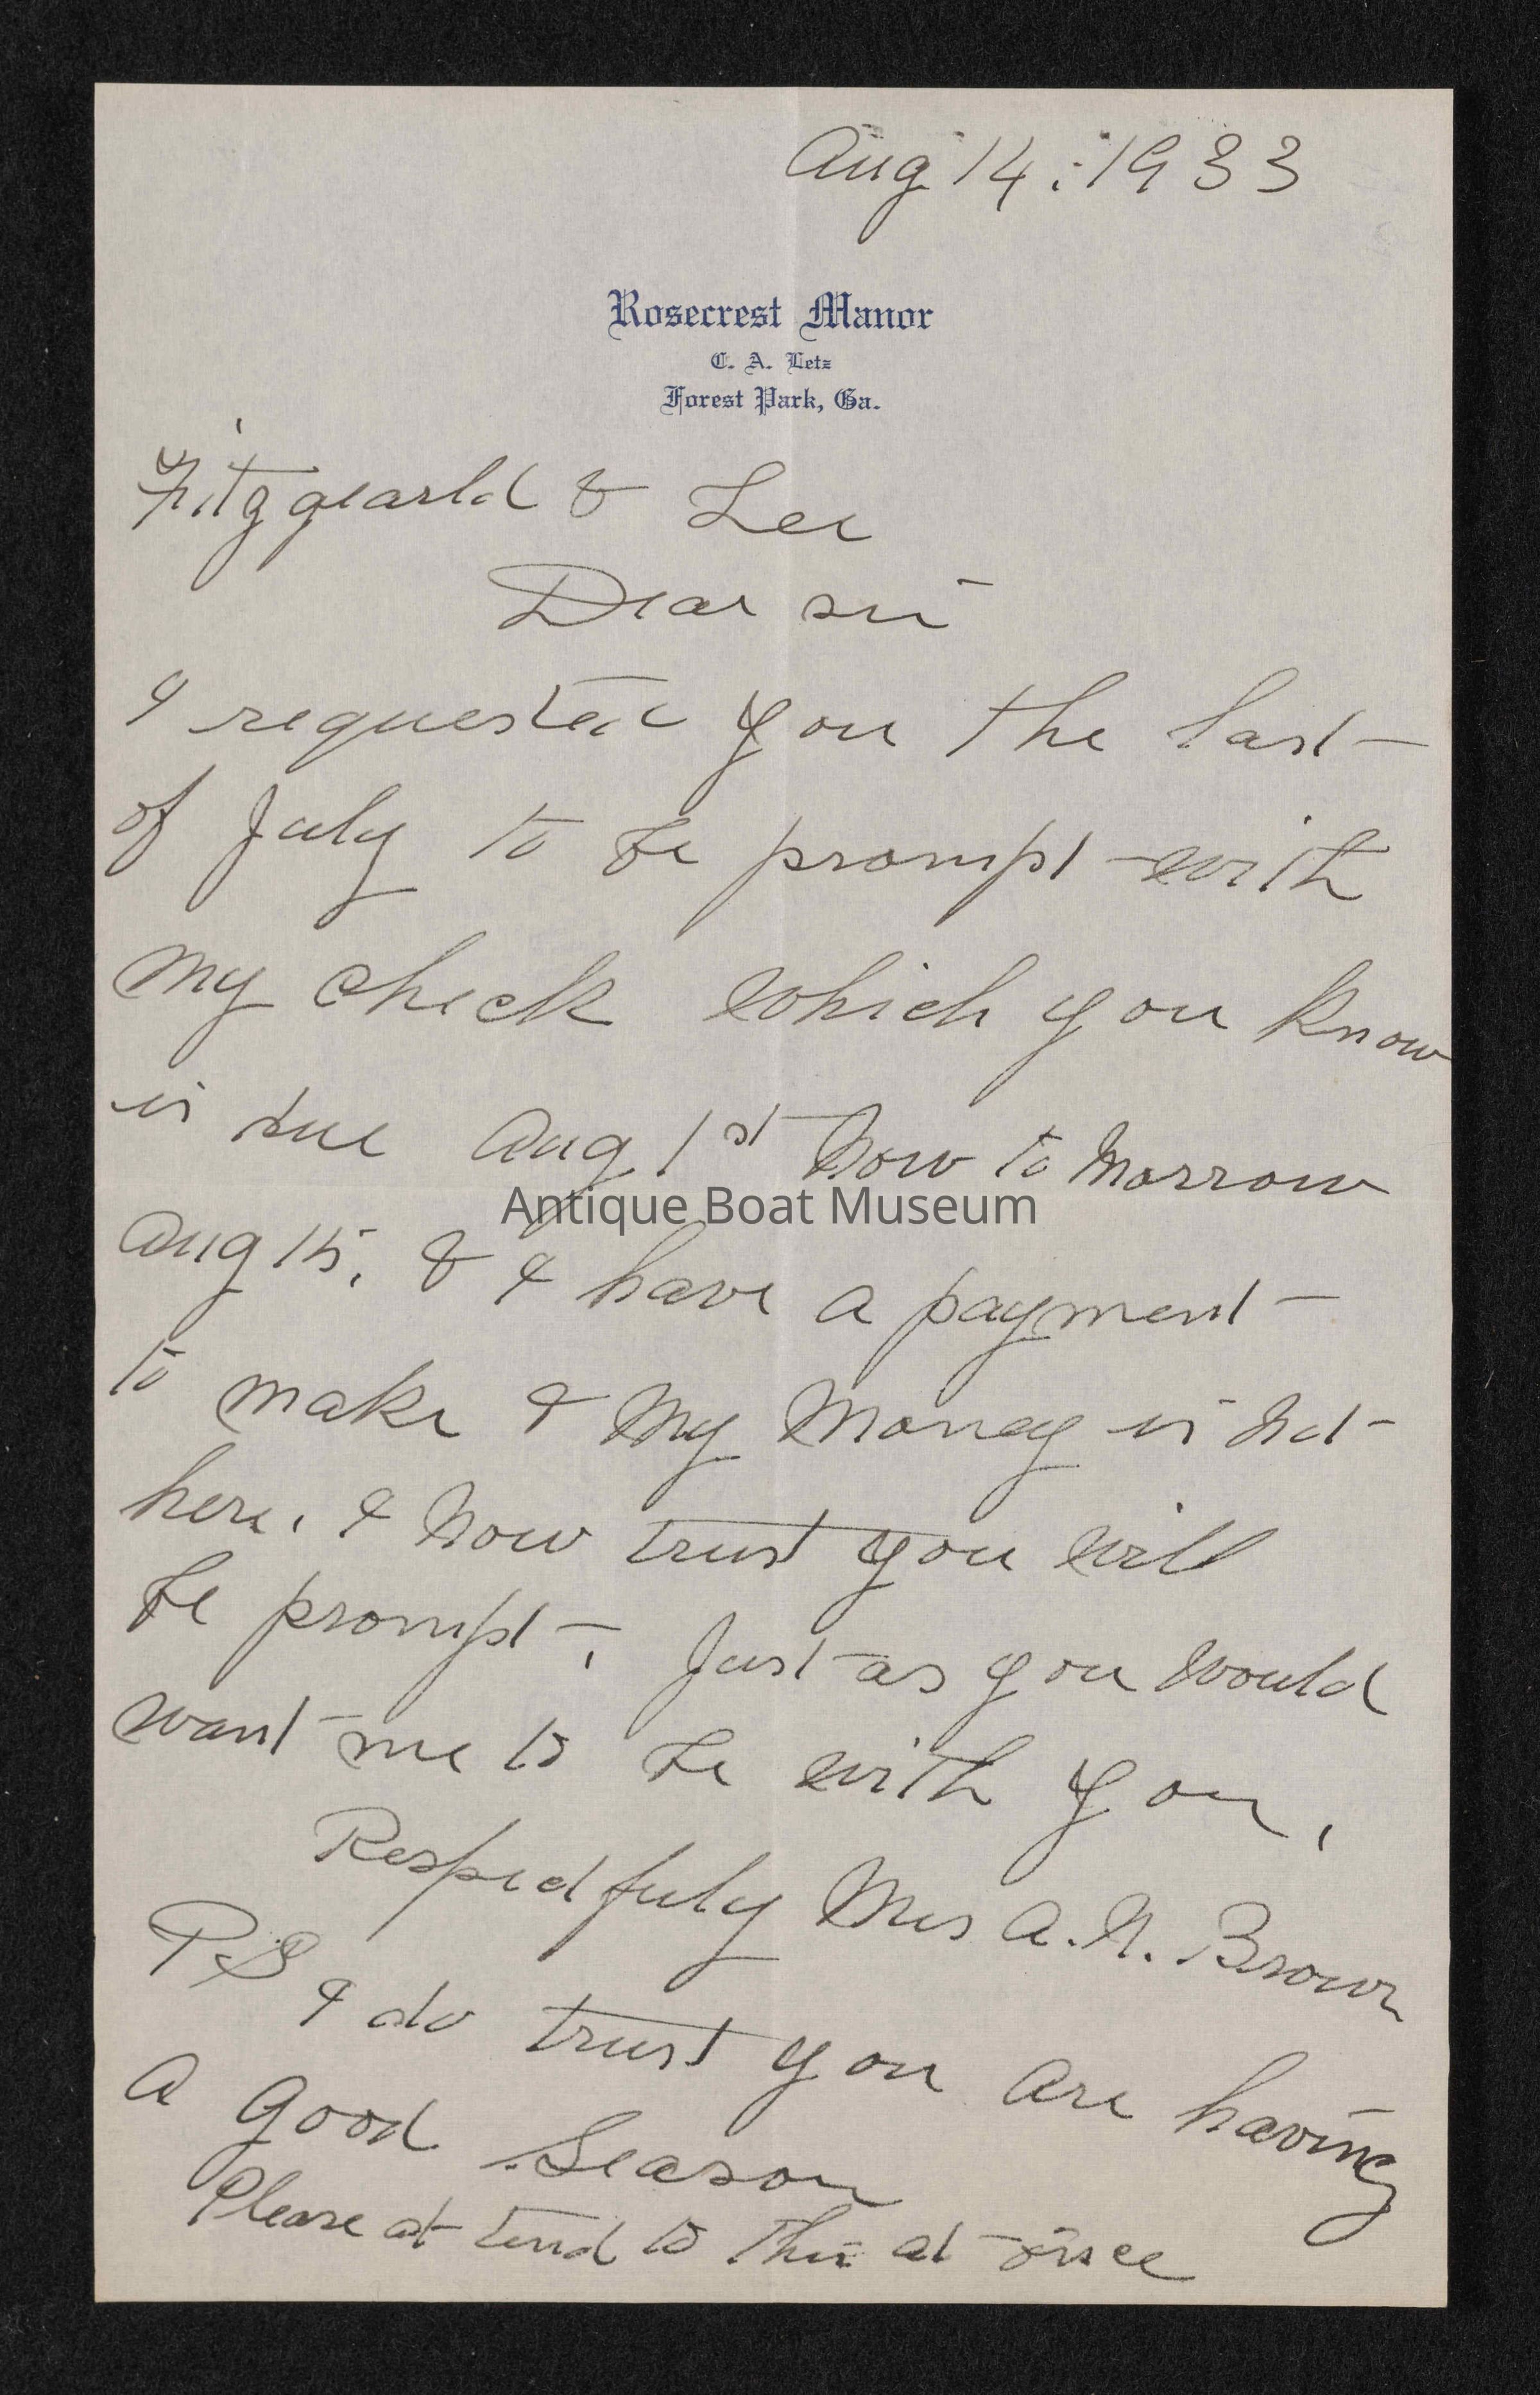 Aug 14: 1933
Rosecrest Manor
C. A. Letz
Forest Park, Ga.
Fitzgearld & Lee
Dear sir
I requested you the last
of July to be prompt with
my check which you know
is due Aug 1st Now to Morrow
Aug 15, & I have a payment
to make & My Money is Not
here. I Now trust you will
be prompt, Just as you would
want me to be with you,
Respectfuly Mrs A. N. Brown
PS I do trust you are having
a Good Season
Please at tend to this at once
Antique Boat Museum